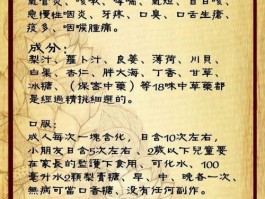 急慢性咽炎、牙疼、口臭、口舌生瘡、
痰多、咽喉腫痛。
成分:
梨汁、蘿卜汁、良姜、薄荷、川貝、
白果、杏仁、胖大海、丁香、甘草、
冰糖、(保密中藥)等18味中草藥都
是經過精挑細選的。
口服:
成人每次一塊含化,日含10次左右,
小朋友日含5次左右、2歲以下兒童要
在家長的監護下食用、可化水、100
毫升水2顆梨膏糖、早、中、晚各一次、
無病可當口香糖、沒有任何副作。